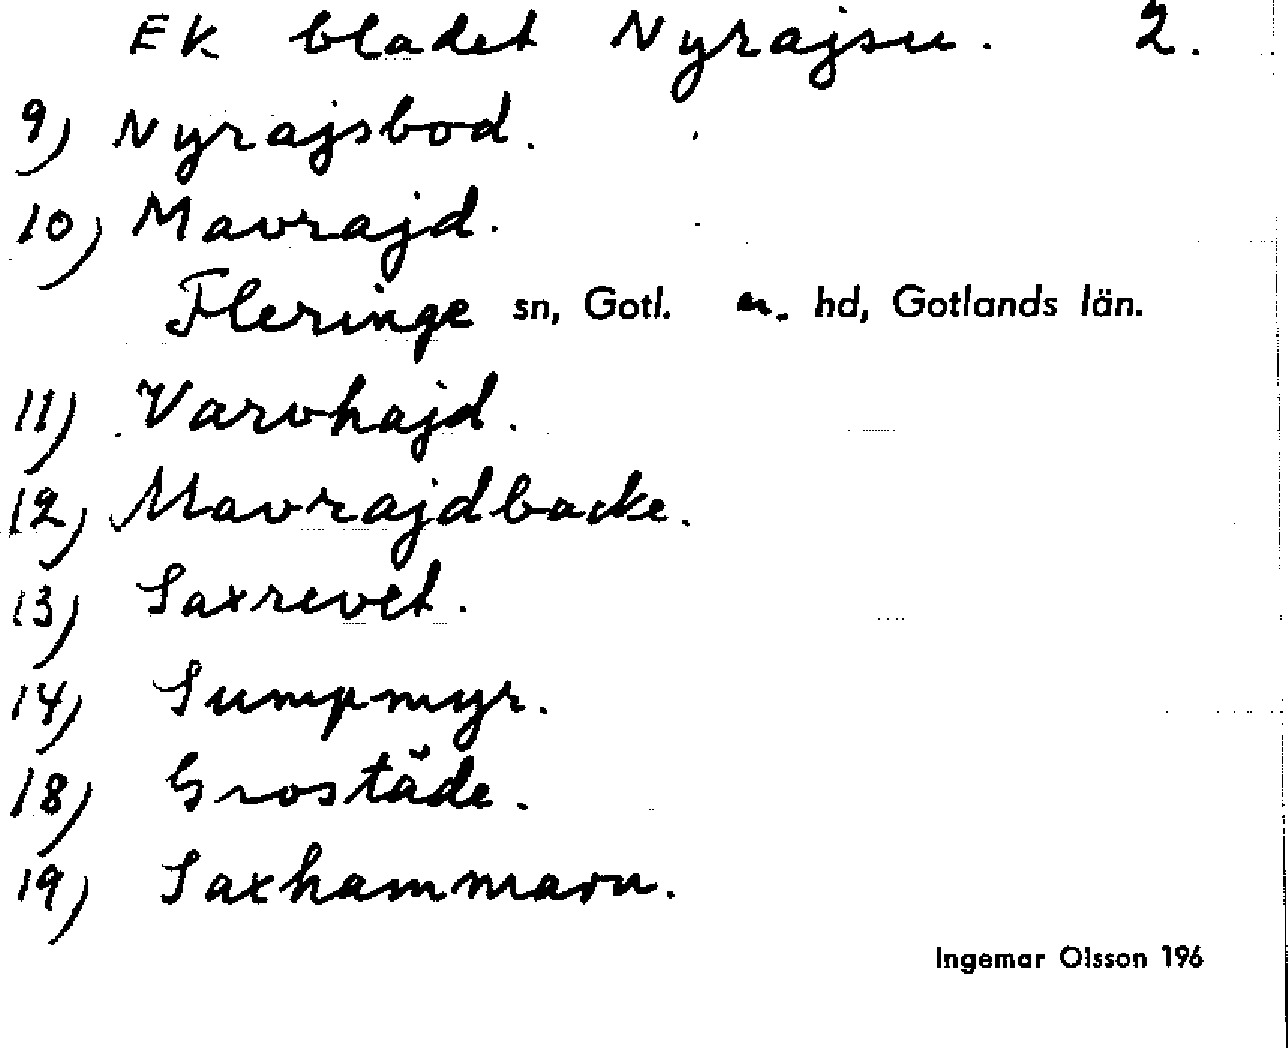 Ek bladet Nyrajsu. 2.
9) Nyrajsbod.
10) Mavrajd.
Fleringe sn, Gotl. n. hd, Gotlands län.
11) Varvhajd.
12) Mavrajdbacke.
13) Saxrevet.
14) Sumpmyr.
18) Grostäde.
19) Saxhammarn.
Ingemar Olsson 196